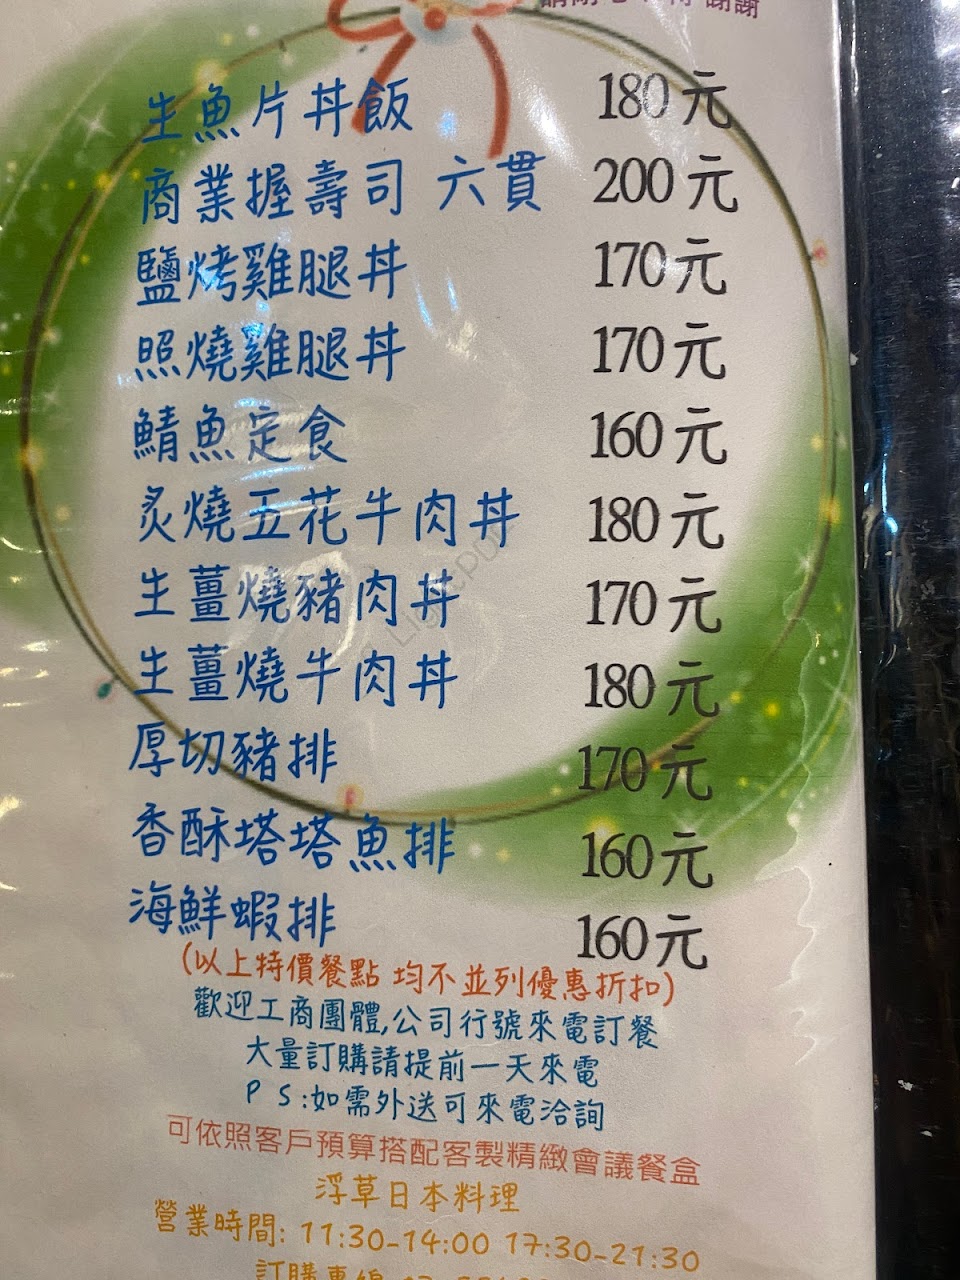 謝謝
生魚片丼飯 180元
商業握壽司 六貫 200元
鹽烤雞腿丼 170元
照燒雞腿丼 170元
鯖魚定食 160元
炙燒五花牛肉丼 180元
生薑燒豬肉丼 170元
生薑燒牛肉丼 180元
厚切豬排 170元
香酥塔塔魚排 160元
海鮮蝦排 160元
(以上特價餐點 均不並列優惠折扣)
歡迎工商團體,公司行號來電訂餐
大量訂購請提前一天來電
PS:如需外送可來電洽詢
可依照客戶預算搭配客製精緻會議餐盒
浮草日本料理
營業時間: 11:30-14:00 17:30-21:30
訂購專線